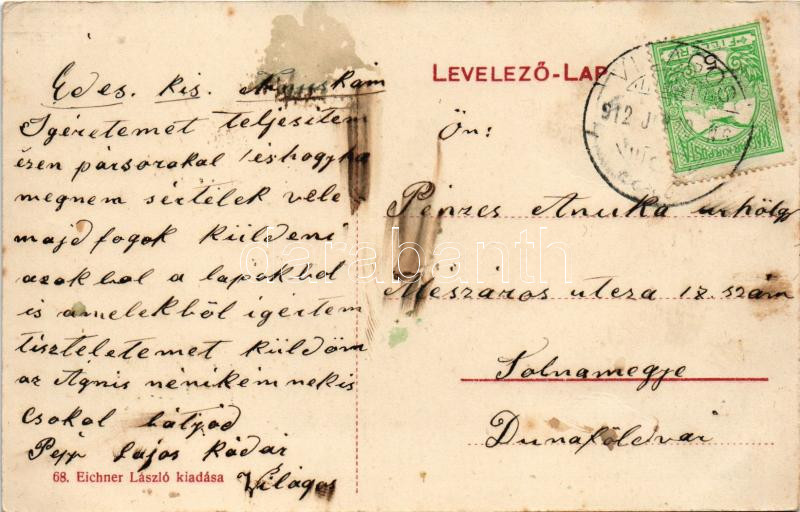 Edes. kis. Anuskám
Igéretemet teljesitem
ezen pársorokal és hogyha
megnem sértelek vele
majd fogok küldeni
azokbol a lapokbol
is amelekböl igértem
tiszteletemet küldöm
az Ágnis nénikém nekis
csokol bátyád
Lajos Kádár
Világos
68. Eichner László kiadása
LEVELEZŐ-LAP
Ön:
Pénzes Anuka urhölgy
Mészáros utcza 17. szám
Tolnamegje
Dunaföldvár
VILÁGOS
912
darabanth.com